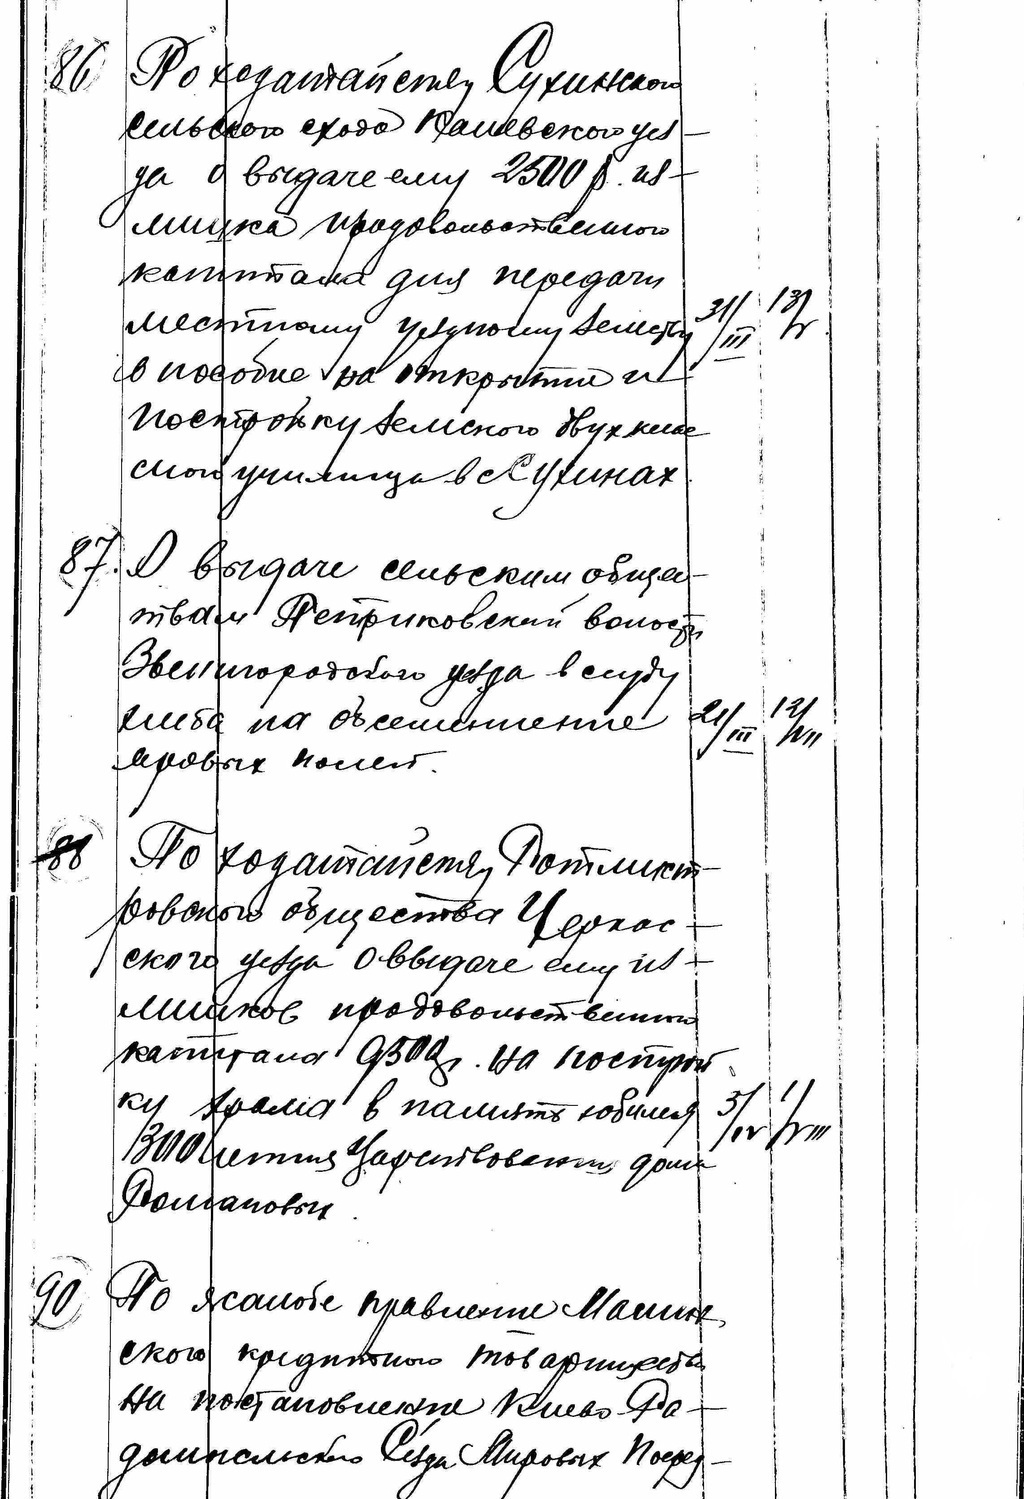 86 По ходатайству Сухинского
сельского схода Каневского уез-
да о выдаче ему 2500 р. из-
лишка продовольственного
капитала для передачи
местному уездному земству 31/III 13/V
в пособие на открытие и
постройку земского двухклас
сного училища в с. Сухинах
87. О выдаче сельским общес-
твам Петриковской волости
Звенигородского уезда в ссуду
хлеба на обсеменение 21/III 12/VII
яровых полей.
88 По ходатайству Ротмист-
ровского общества Черкас-
ского уезда о выдаче ему из-
лишков продовольственного
капитала 9500 р. на построй-
ку храма в память юбилея 3/IV 1/VIII
300 летия Царствования дома
Романовых.
90 По жалобе правления Малин-
ского кредитного товарищества
на постановление Киево-Ра-
домысльского Съезда Мировых Посред-